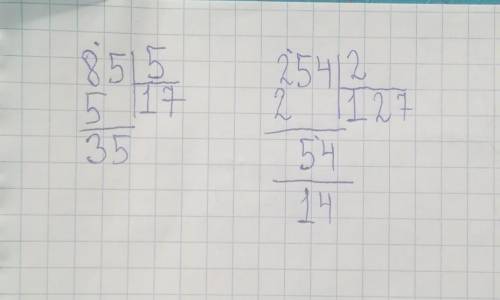 85 5
5 17
35
254 2
2 127
54
14